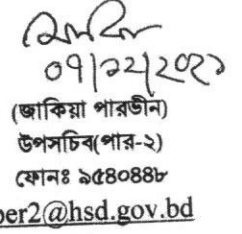 ০৭/১২/২০২১
(জাকিয়া পারভীন)
উপসচিব(পার-২)
ফোনঃ ৯৫৪০৪৪৮
per2@hsd.gov.bd